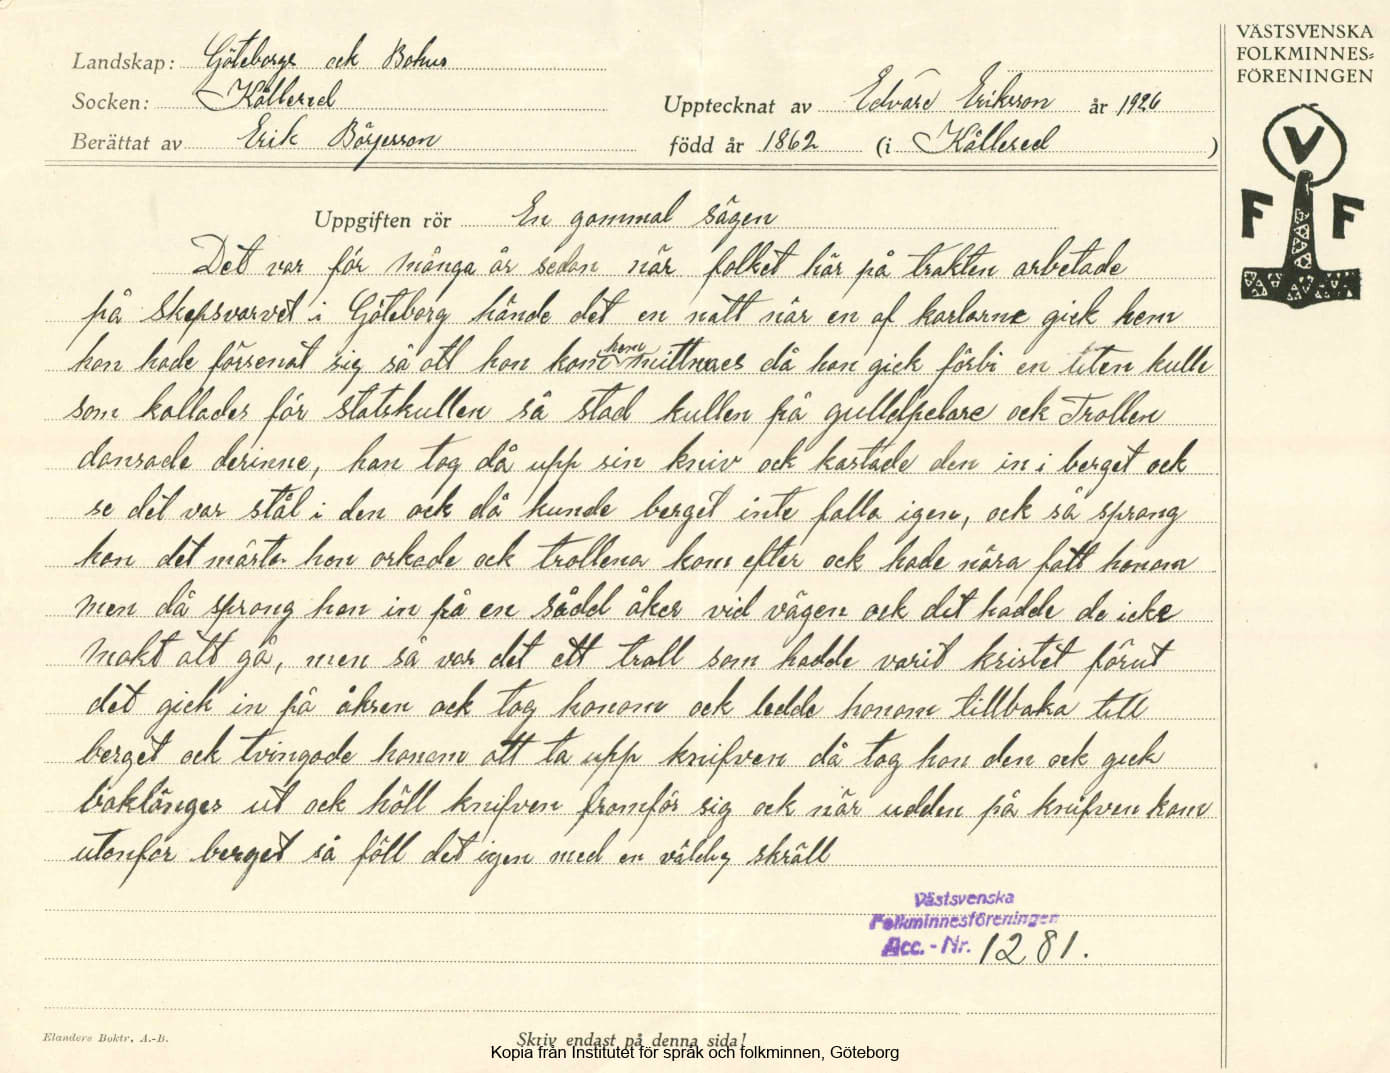 VÄSTSVENSKA
FOLKMINNES-
FÖRENINGEN
V
F F
Landskap: Göteborgs ock Bohus
Socken: Kållered
Upptecknat av Edvard Eriksson år 1926
Berättat av Erik Börjesson född år 1862 (i Kållered)
Uppgiften rör En gammal sägen
Det var för många år sedan när folket här på trakten arbetade
på skepsvarvet i Göteborg hände det en natt när en af karlarne gick hem
han hade försenat sig så att han kom hem mittnaes då han gick förbi en liten kulle
som kallades för statskullen så stod kullen på gulldpelare ock Trollen
dansade derinne, han tog då upp sin kniv ock kastade den in i berget ock
se det var stål i den ock då kunde berget inte falla igen, ock så sprang
han det mästa han orkade ock trollena kom efter ock hade nära fatt honom
men då sprang han in på en sådd åker vid vägen ock dit hadde de icke
makt att gå, men så var det ett troll som hadde varit kristet förut
det gick in på åkren ock tog honom ock ledde honom tillbaka till
berget ock tvingade honom att ta upp knifven då tog han den ock gick
baklänges ut ock höll knifven framför sig ock när udden på knifven kom
utanför berget så föll det igen med en väldig skräll
Västsvenska
Folkminnesföreningen
Acc.-Nr. 1281.
Elanders Boktr. A.-B.
Skriv endast på denna sida!
Kopia från Institutet för språk och folkminnen, Göteborg